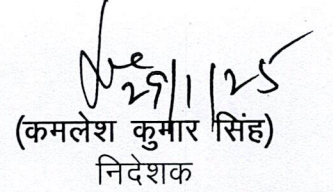 29/1/25
(कमलेश कुमार सिंह)
निदेशक